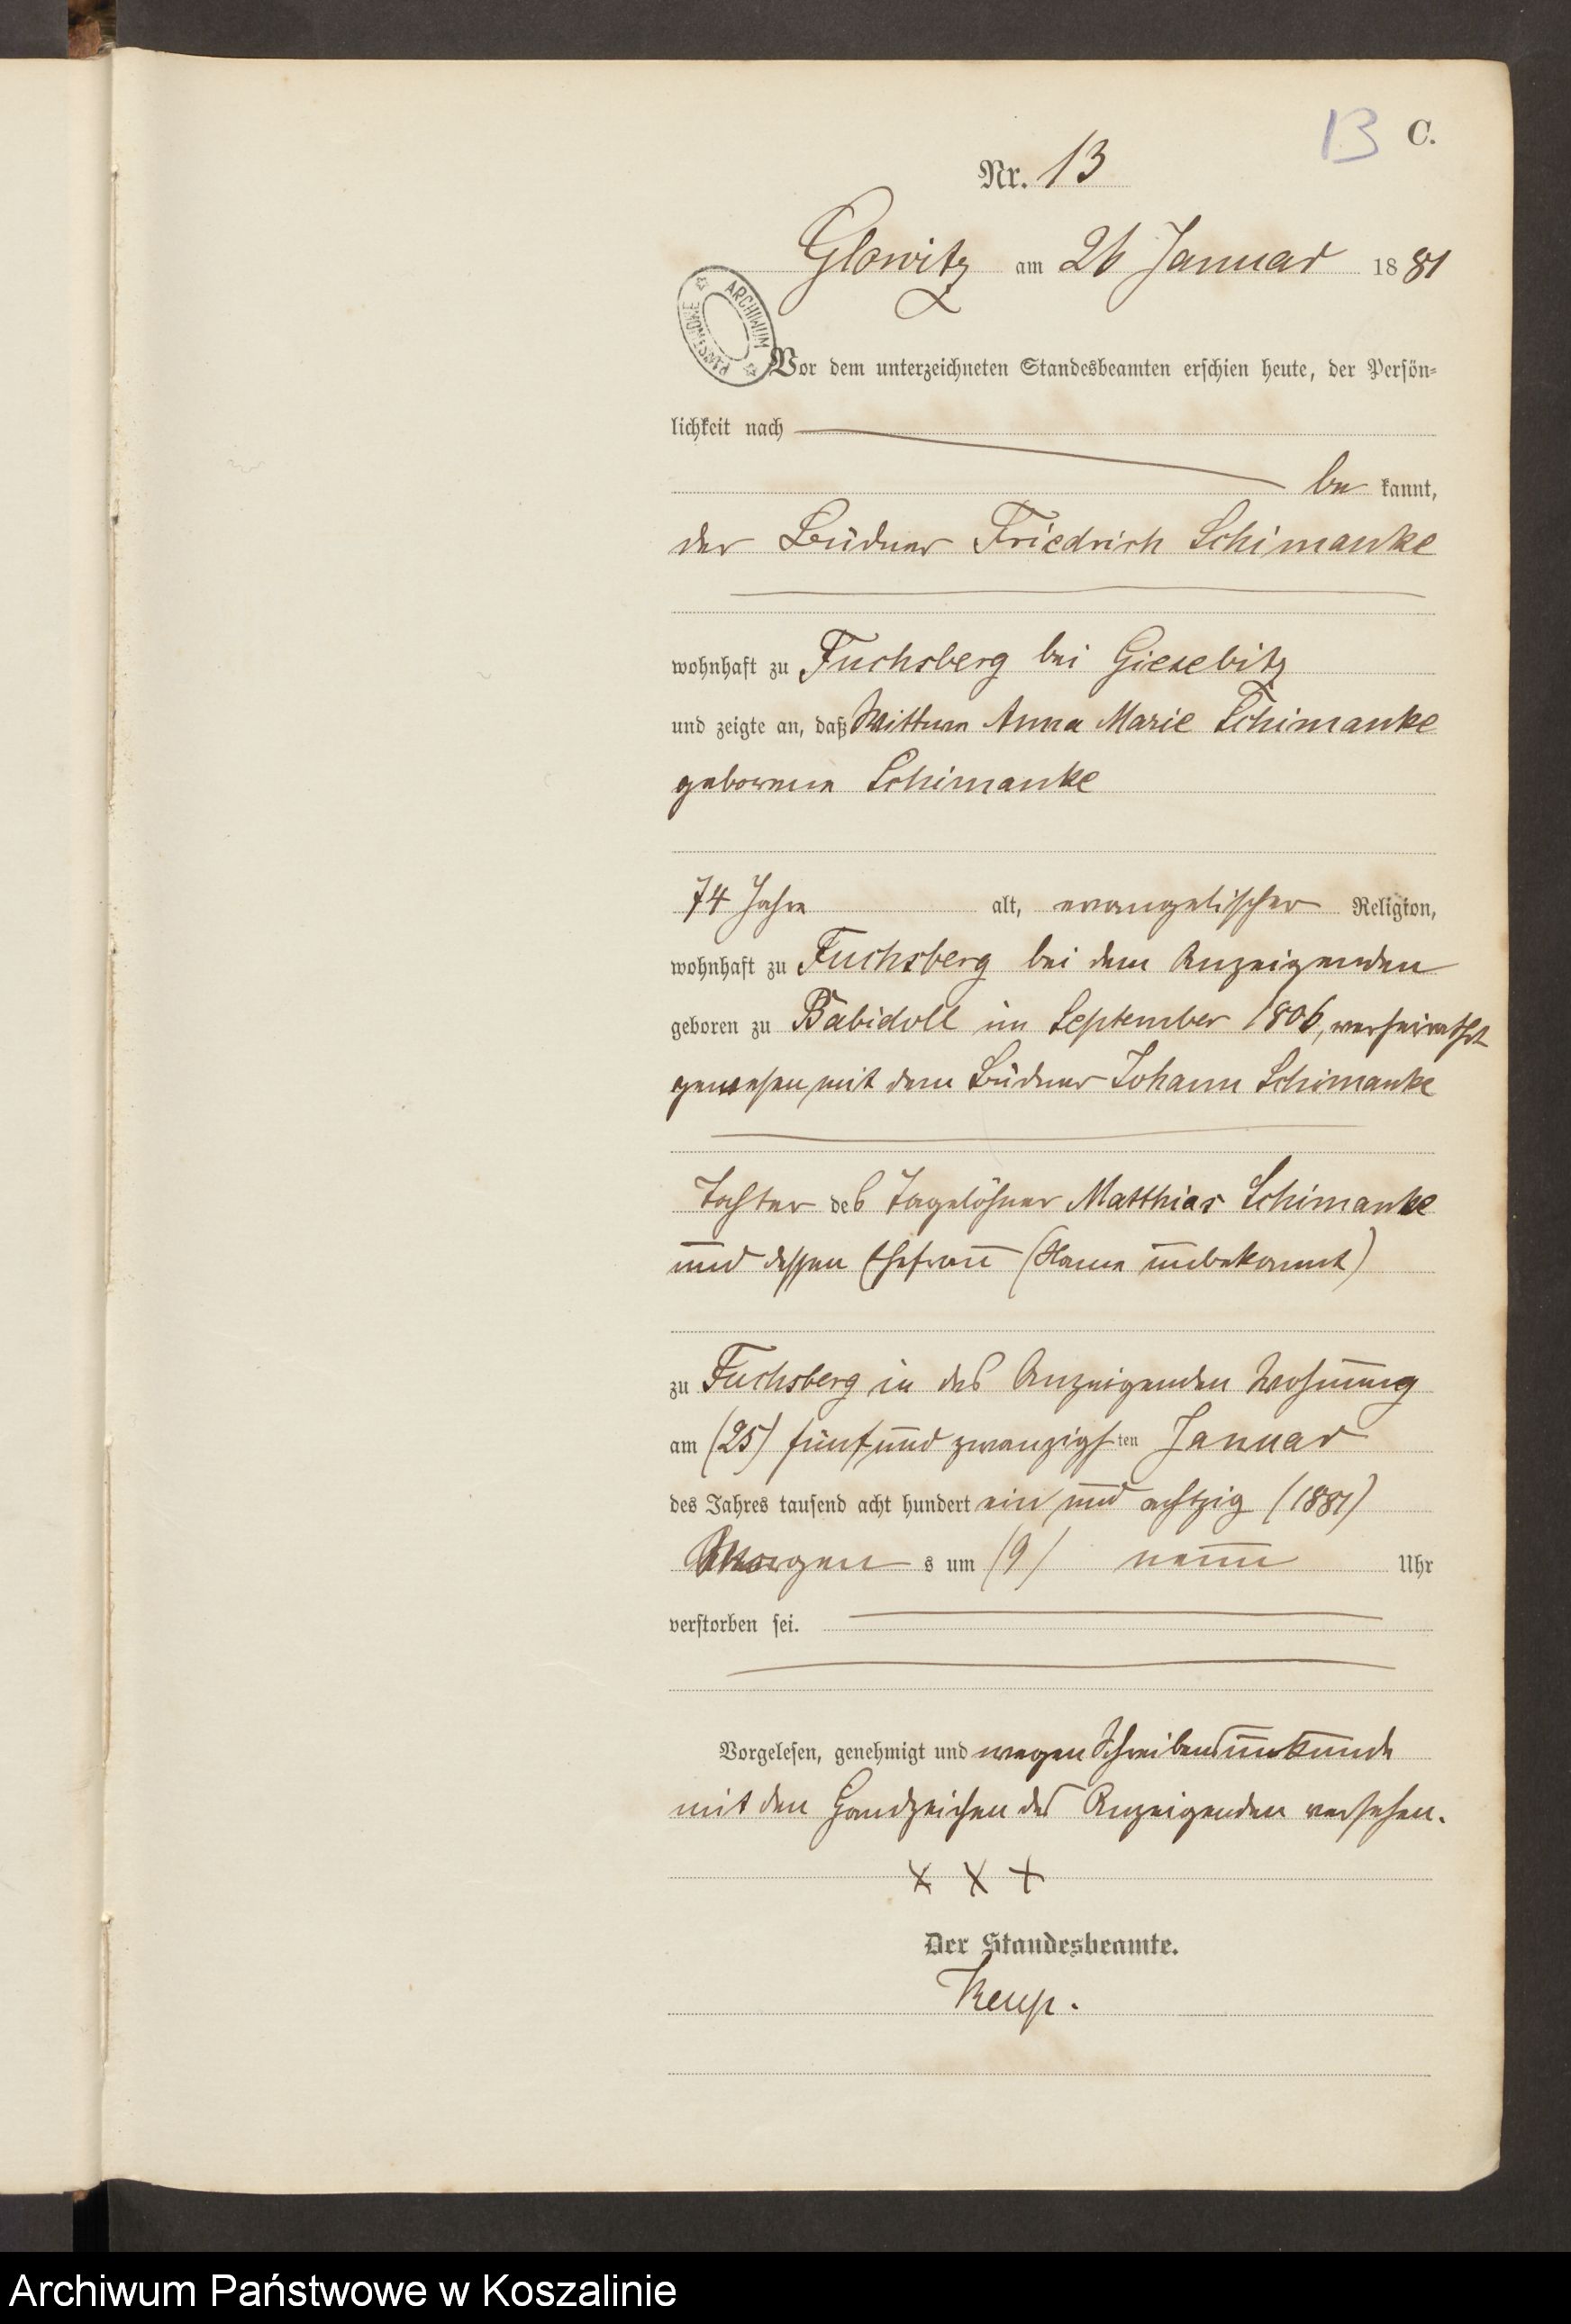 13 C.
Nr. 13
Glowitz am 26 Januar 1881
ARCHIWUM PAŃSTWOWE
Vor dem unterzeichneten Standesbeamten erschien heute, der Persön-
lichkeit nach
be kannt,
der Büdner Friedrich Schimanke
wohnhaft zu Fuchsberg bei Giesebitz
und zeigte an, daß Wittwe Anna Marie Schimanke
geborene Schimanke
74 Jahre alt, evangelischer Religion,
wohnhaft zu Fuchsberg bei dem Anzeigenden
geboren zu Babidoll im September 1806, verheirathet
gewesen mit dem Büdner Johann Schimanke
Tochter des Tagelöhner Matthias Schimanke
und dessen Ehefrau (Name unbekannt)
zu Fuchsberg in des Anzeigenden Wohnung
am (25) fünf und zwanzigsten Januar
des Jahres tausend acht hundert ein und achtzig (1881)
Morgens um (9) neun Uhr
verstorben sei.
Vorgelesen, genehmigt und wegen Schreibensunkunde
mit den Handzeichen des Anzeigenden versehen.
x x x
Der Standesbeamte.
Archiwum Państwowe w Koszalinie